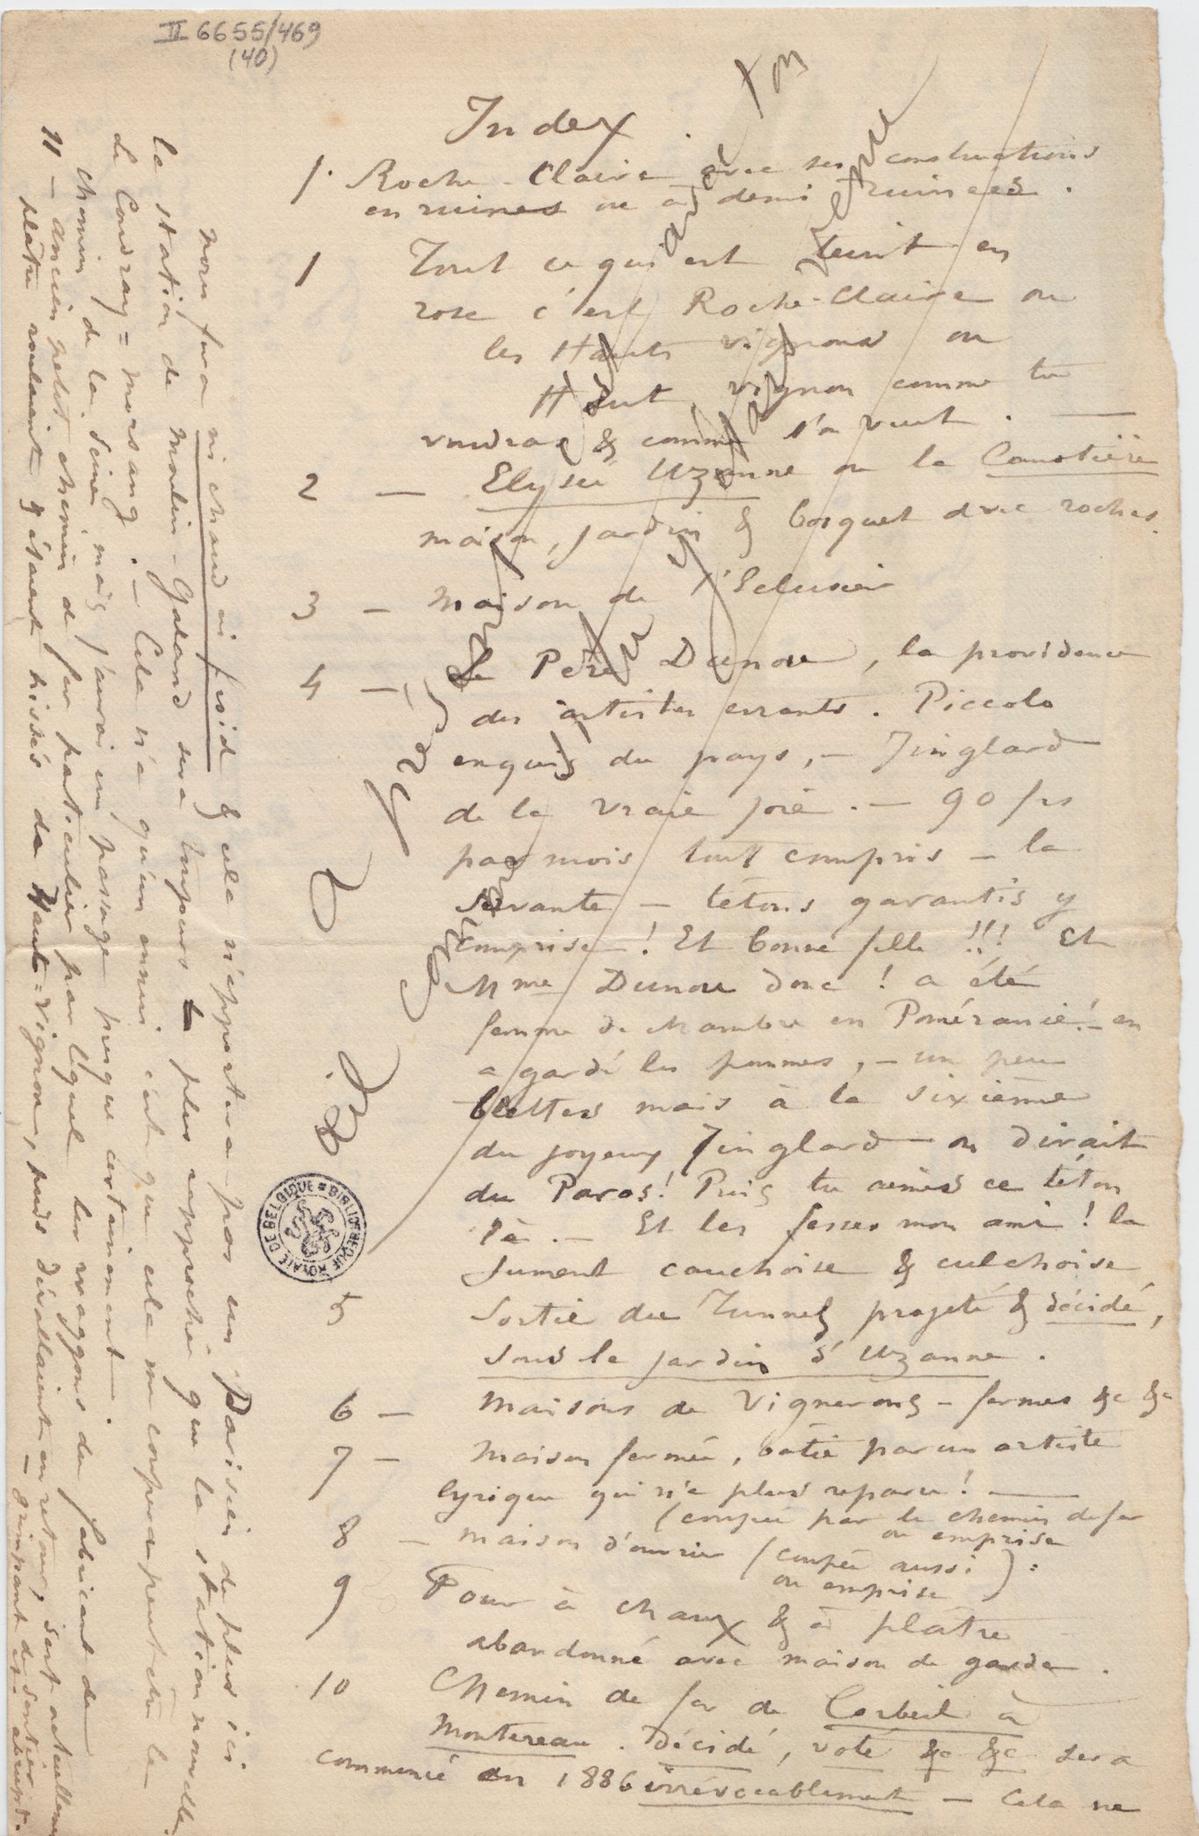 II 6655/469
(40)
Index.
1. Roche-Claire avec ses constructions
en ruines ou à demi ruinées.
1 Tout ce qui est teinté en
rose c'est Roche-Claire ou
les Hauts vignons ou
Haut vignon comme tu
voudras & comme s'a veut. —
2 — Elysée Uzanne ou la
maison, jardin & bosquet avec roches.
3 — Maison de l'Eclusier
4 — Le Père Dunou, la providence
des artistes errants. Piccolo
exquis du pays, — Jinglard
de la vraie joie. — 90 frs
par mois tout compris — la
servante — tétons garantis y
comprise! Et bonne fille!!! Et
Mme Dunou donc! a été
femme de chambre en Poméranie! — en
a gardé les pommes, — un peu
blettes mais à la sixième
du joyeux Jinglard on dirait
du Paros! Puis tu aimes ce téton
là. — Et les fesses mon ami! la
jument cauchoise & culchoise
5 Sortie du Tunnel projeté & décidé,
sous le jardin d'Uzanne.
6 — Maisons de Vignerons — fermes &c &c
7 — Maison fermée, batie par un artiste
lyrique qui n'a plus reparu! —
8 — maison d'ouvrier (coupée par le chemin de fer
ou emprise
(coupée aussi
ou emprise):
9 Four à chaux & à plâtre
abandonné avec maison de garde.
10 Chemin de fer de Corbeil à
Montereau. Décidé, voté &c &c sera
commencé en 1886 irrévocablement — Cela ne
nous fera ni chaud ni froid & cela n'apportera pas un Parisien de plus ici
la station de Moulin-Galand sera toujours plus rapprochée que la station nouvelle
de Coudray=Morsang. — Cela n'a qu'un ennui c'est que cela me coupera peut être le
chemin de la Seine, mais j'aurai un passage presque certainement.
11 — ancien petit chemin de fer particulier par lequel les waggons du fabricant de
plâtre roulaient & étaient hissés de Haut=Vignon, puis dévallaient en retour, sert actuellement
de sentier — grimpant et abrupt.
BIBLIOTHEQUE ROYALE DE BELGIQUE